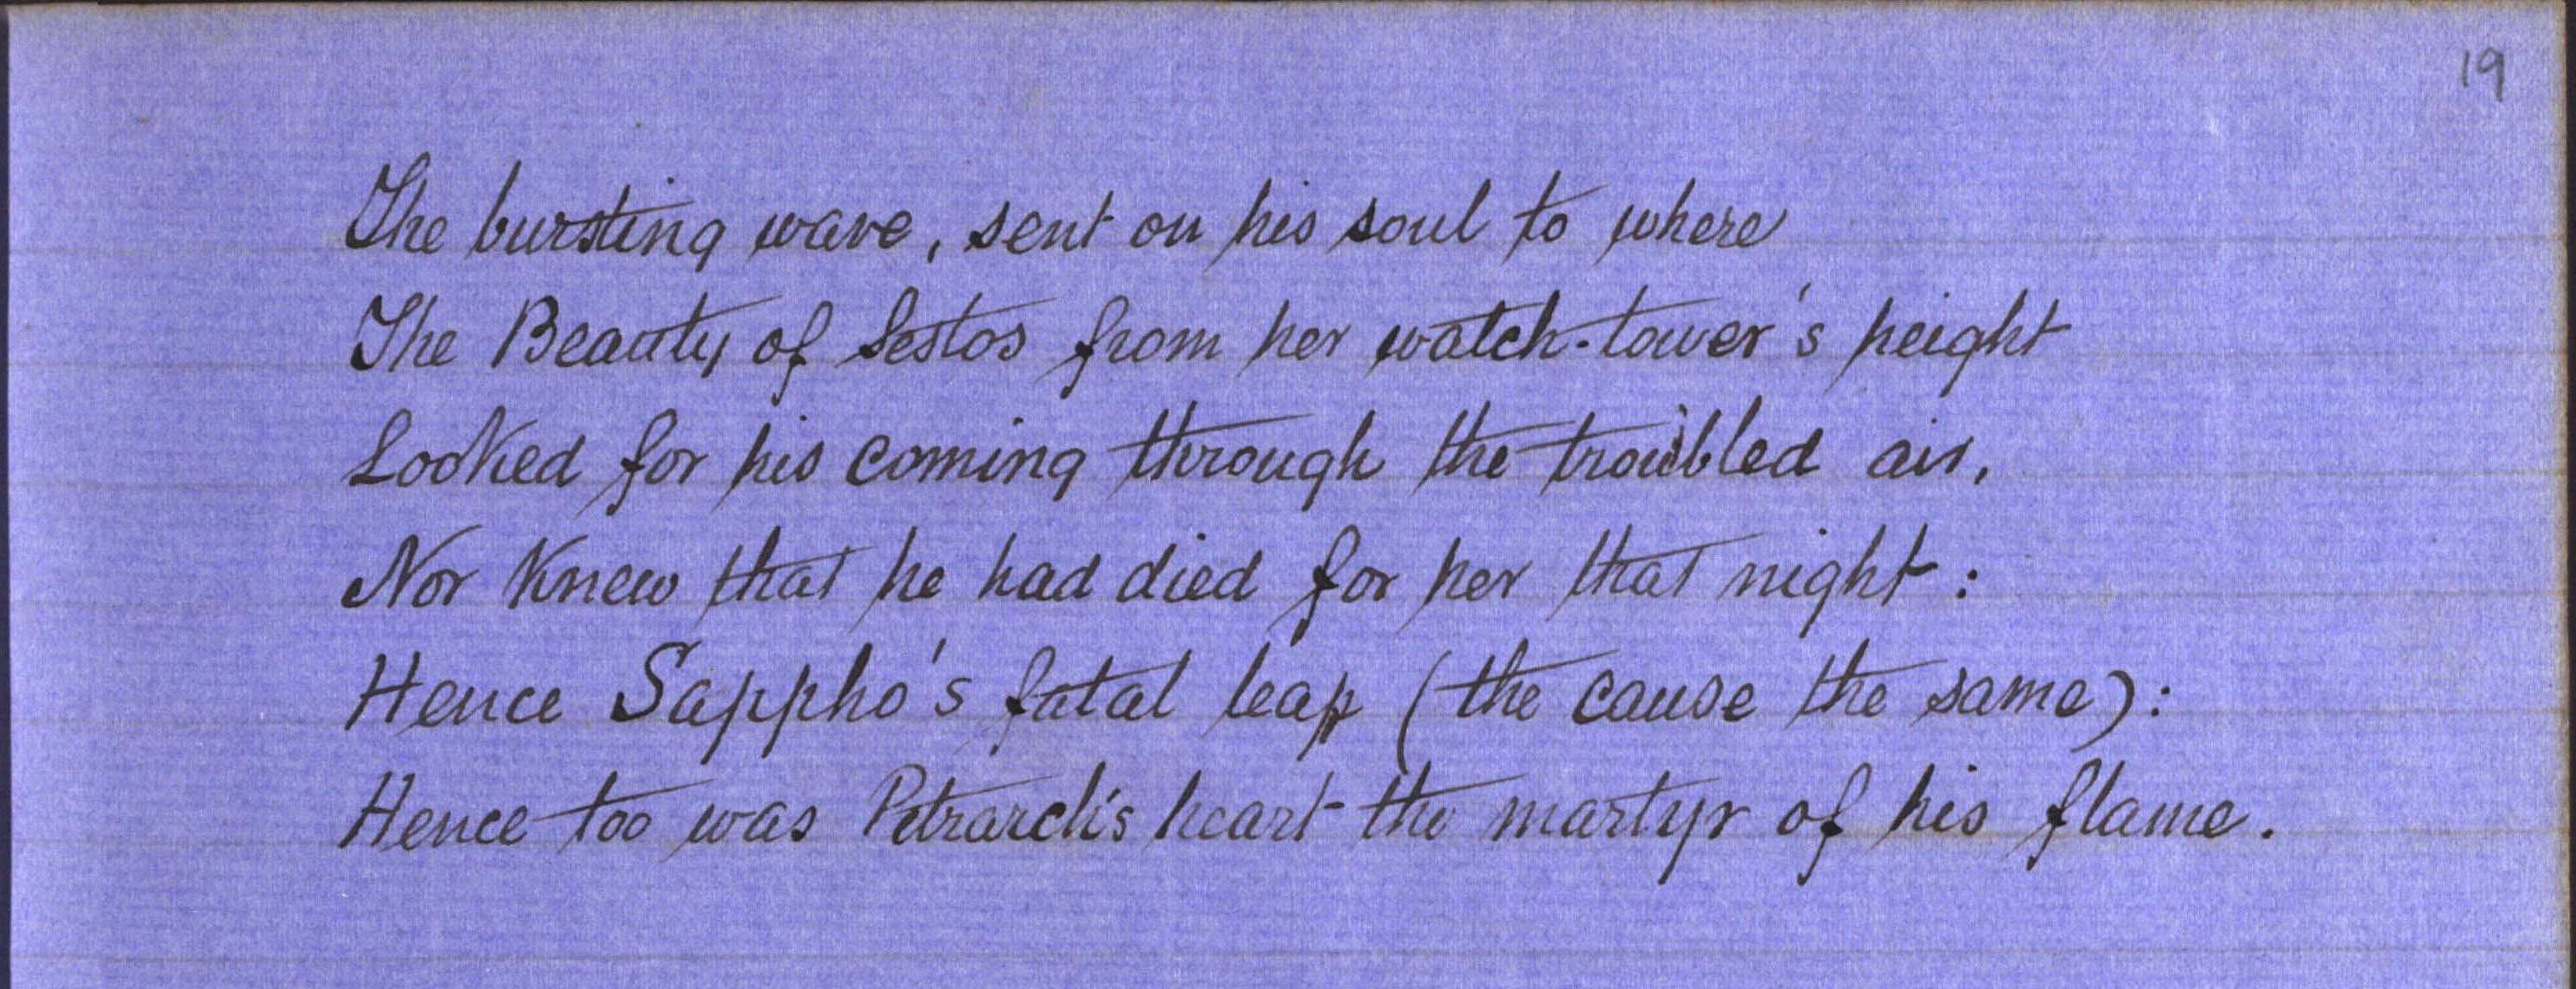 19
The bursting wave, sent on his soul to where
The Beauty of Sestos from her watch-tower's height
Looked for his coming through the troubled air,
Nor Knew that he had died for her that night:
Hence Sappho's fatal leap (the cause the same):
Hence too was Petrarch's heart the martyr of his flame.